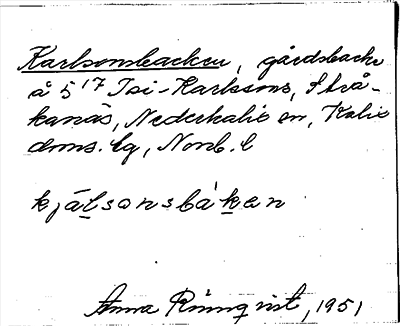 Karlsonsbacken, gårdsbacke
å 5 17 Isi-Karlssons, Strå-
kanäs, Nederkalix sn, Kalix
doms. lg, Norrb. l
kjälsonsbåken
Anna Rönnqvist, 1951